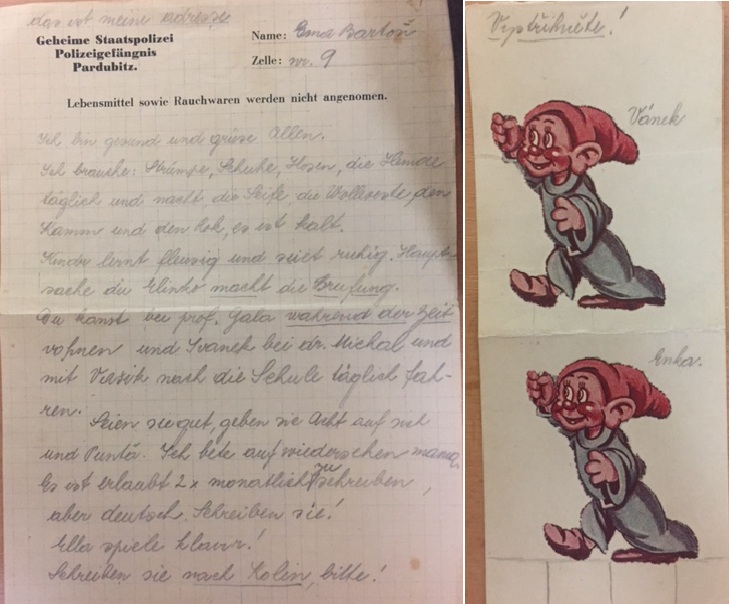 das ist meine adresse
Geheime Staatspolizei
Polizeigefängnis
Pardubitz.
Name: Ema Bartoň
Zelle: nr. 9
Lebensmittel sowie Rauchwaren werden nicht angenomen.
Ich bin gesund und grüse Allen.
Ich brauche: Strümpe, Schuhe, Hosen, die Hemde
täglich und nacht, die Seife, die Wolleveste, den
Kamm und den Rok, es ist kalt.
Kinder lernt fleusig und seiet ruhig. Haupt-
sache du Elinko macht die Brufung.
Du kanst bei prof. Gala während der Zeit
vohnen und Ivanek bei dr. Michal und
mit nach die Schule täglich fah-
ren.
Seien sie gut, geben sie Acht auf sich
und Puntă. Ich bete auf wiedersehen mama.
Es ist erlaubt 2x monatlich zu schreiben,
aber deutsch. Schreiben sie!
Ella spiele klavir!
Schreiben sie nach Kolin, bitte!
Vystřihněte!
Vánek
Enka.